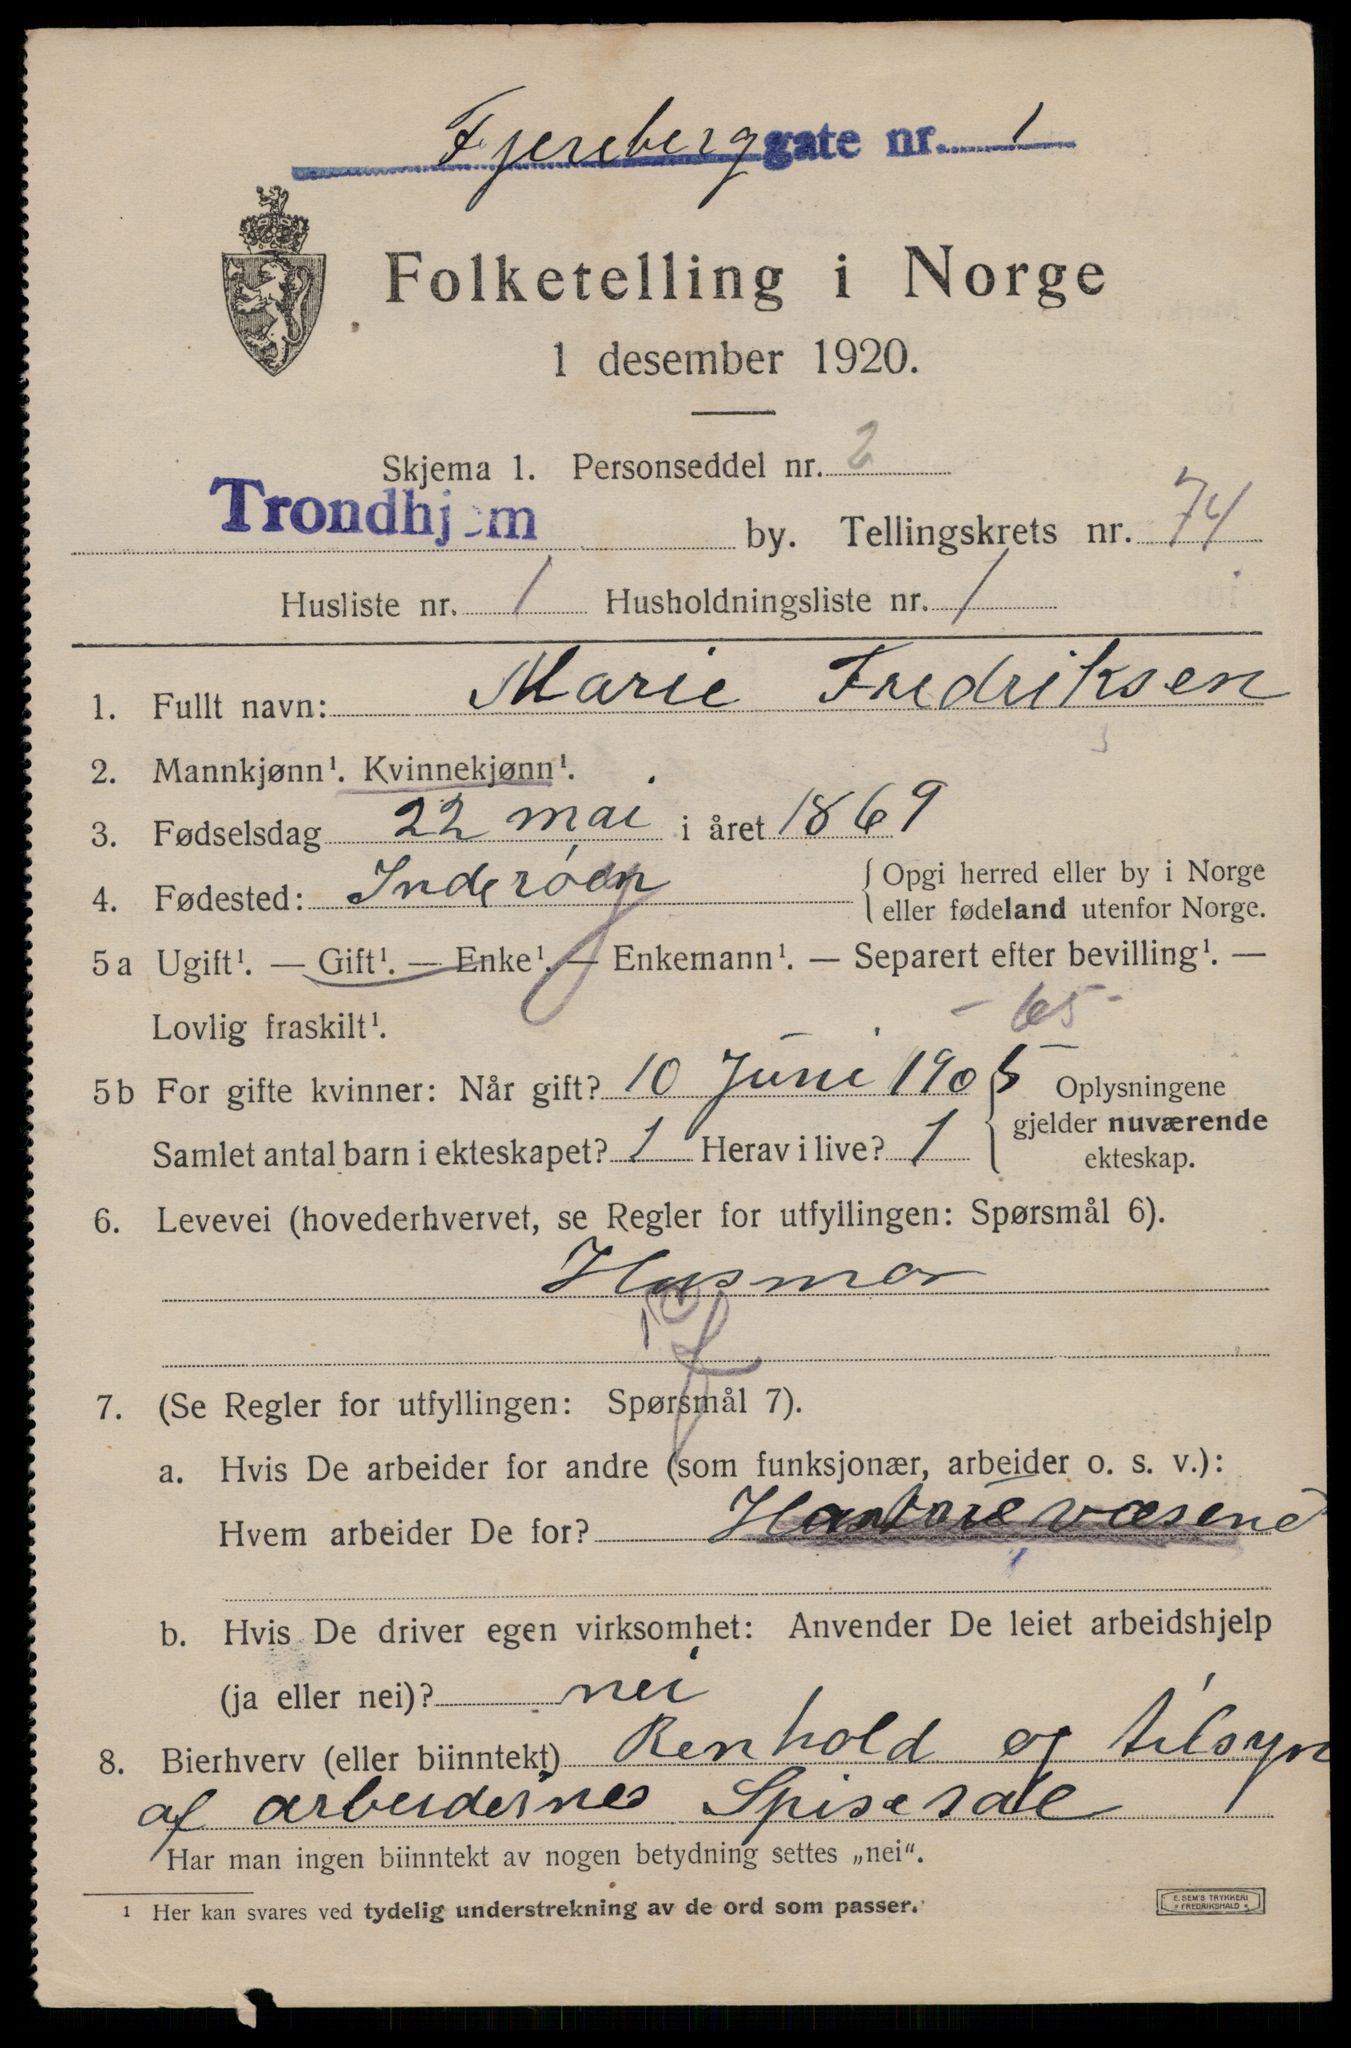 Fjereberggate nr. 1
Folketelling i Norge
1 desember 1920.
Skjema 1. Personseddel nr. 2
Trondhjem by. Tellingskrets nr. 74
Husliste nr. 1 Husholdningsliste nr. 1
1. Fullt navn: Marie Fredriksen
2. Mannkjønn¹. Kvinnekjønn¹.
3. Fødselsdag 22 mai i året 1869
4. Fødested: Inderøen { Opgi herred eller by i Norge
eller fødeland utenfor Norge.
5a Ugift¹. — Gift¹. — Enke¹. — Enkemann¹. — Separert efter bevilling¹. —
Lovlig fraskilt¹.
- 65 -
5b For gifte kvinner: Når gift? 10 Juni 1905 { Oplysningene
gjelder nuværende
ekteskap.
Samlet antal barn i ekteskapet? 1 Herav i live? 1
6. Levevei (hovederhvervet, se Regler for utfyllingen: Spørsmål 6).
Husmor
7. (Se Regler for utfyllingen: Spørsmål 7).
a. Hvis De arbeider for andre (som funksjonær, arbeider o. s. v.):
Hvem arbeider De for? Havnevæsened
b. Hvis De driver egen virksomhet: Anvender De leiet arbeidshjelp
(ja eller nei)? nei
8. Bierhverv (eller biinntekt) Renhold og tilsyn
af arbeidernes Spisesale
Har man ingen biinntekt av nogen betydning settes „nei“.
¹ Her kan svares ved tydelig understrekning av de ord som passer.
E. SEM'S TRYKKERI
FREDRIKSHALD